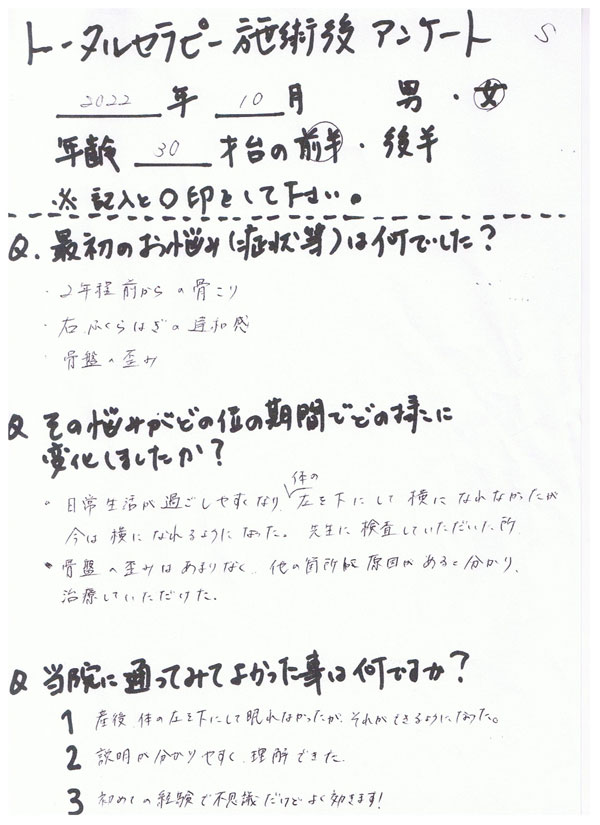 トータルセラピー施術後 アンケート S
2022 年 10 月 男・女
年齢 30 才台の前半・後半
※ 記入と〇印をして下さい。
Q. 最初のお悩み(症状等)は何でした?
・2年程前からの肩こり
・右ふくらはぎの違和感
・骨盤の歪み
Q その悩みがどの位の期間でどの様に
変化しましたか?
体の
・日常生活が過ごしやすくなり 左を下にして横になれなかったが
今は横になれるようになった。先生に検査していただいた所
・骨盤の歪みはあまりなく、他の箇所に原因があると分かり、
治療していただけた。
Q 当院に通ってみてよかった事は何ですか?
1 産後、体の左を下にして眠れなかったが、それができるようになった。
2 説明が分かりやすく理解できた。
3 初めての経験で不思議だけどよく効きます!